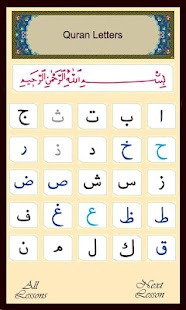 Quran Letters
بِسْمِ اللَّهِ الرَّحْمَنِ الرَّحِيمِ
ا ب ت ث ج
ح خ د ذ ر
ز س ش ص ض
ط ظ ع غ ف
ق ك ل م ن
All Lessons
Next Lesson